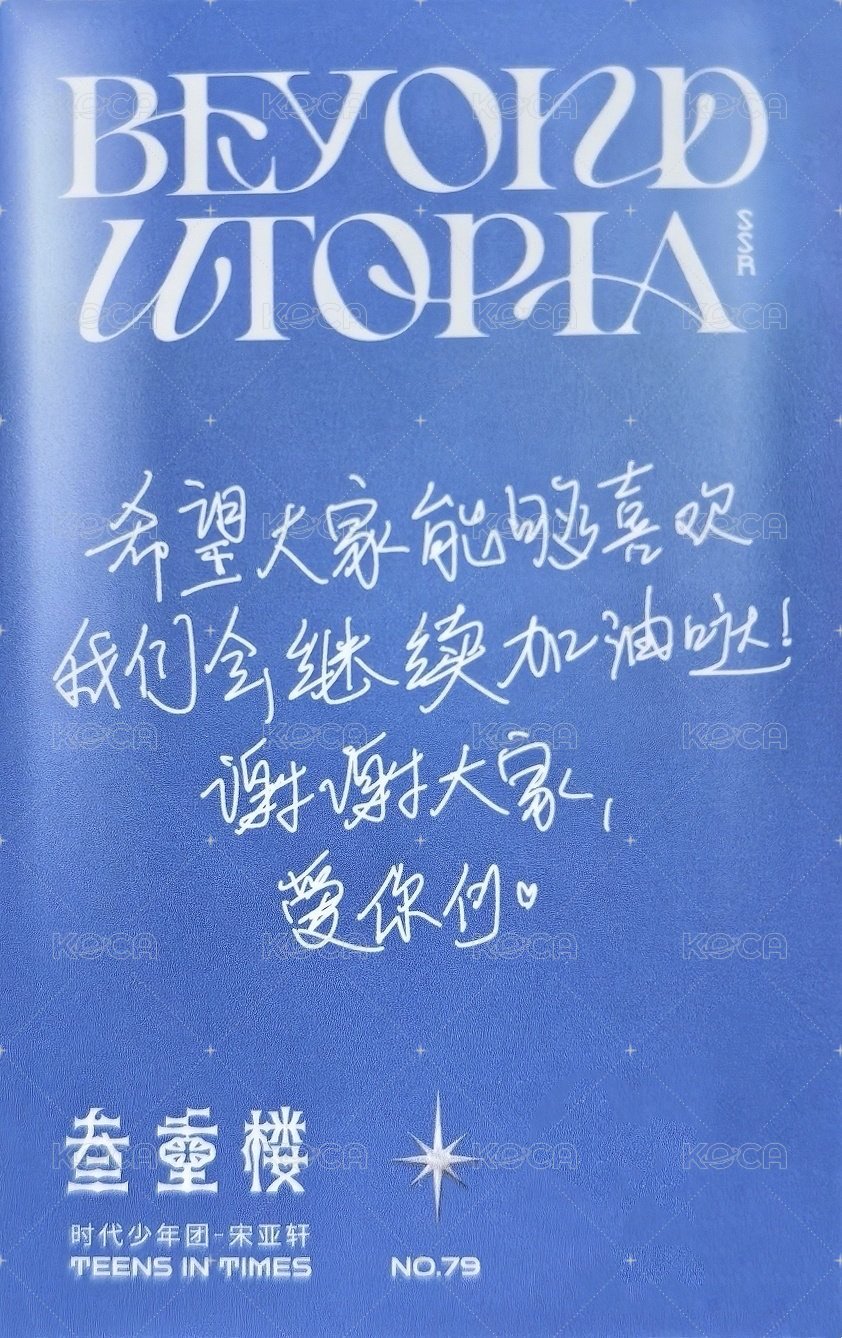 BEYOND
UTOPIA
SSR
希望大家能够喜欢
我们会继续加油哒!
谢谢大家,
爱你们♡
叁重楼
时代少年团-宋亚轩
TEENS IN TIMES
NO.79
KOCA